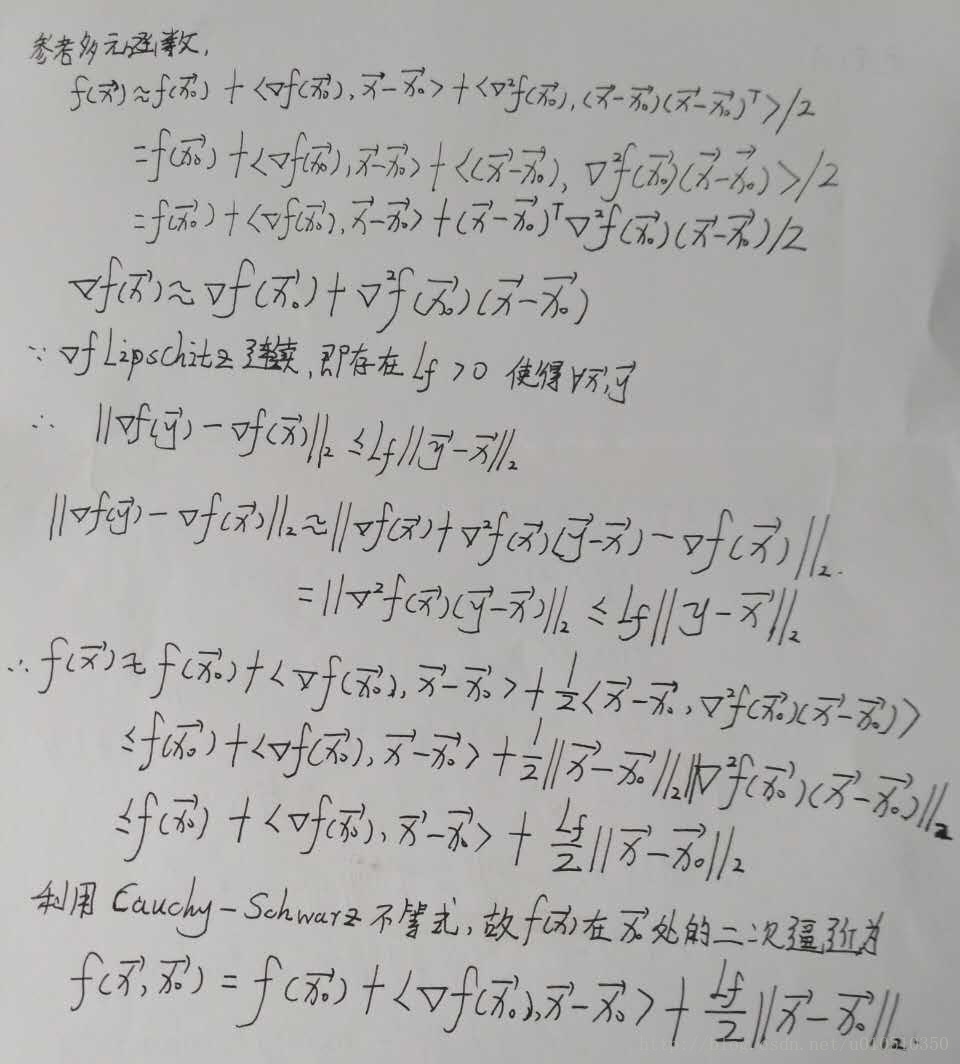 参考多元函数,
f(x⃗)≈f(x⃗₀) + <∇f(x⃗₀), x⃗-x⃗₀> + <∇²f(x⃗₀), (x⃗-x⃗₀)(x⃗-x⃗₀)ᵀ>/2
=f(x⃗₀) + <∇f(x⃗₀), x⃗-x⃗₀> + <(x⃗-x⃗₀), ∇²f(x⃗₀)(x⃗-x⃗₀)>/2
=f(x⃗₀) + <∇f(x⃗₀), x⃗-x⃗₀> + (x⃗-x⃗₀)ᵀ∇²f(x⃗₀)(x⃗-x⃗₀)/2
∇f(x⃗)≈∇f(x⃗₀) + ∇²f(x⃗₀)(x⃗-x⃗₀)
∵ ∇f Lipschitz 连续, 即存在 Lf >0 使得 ∀x⃗,y⃗
∴ ||∇f(y⃗) - ∇f(x⃗)||₂ ≤ Lf||y⃗-x⃗||₂
||∇f(y⃗) - ∇f(x⃗)||₂ ≈ ||∇f(x⃗) + ∇²f(x⃗)(y⃗-x⃗) - ∇f(x⃗)||₂.
= ||∇²f(x⃗)(y⃗-x⃗)||₂ ≤ Lf||y-x⃗||₂
∴ f(x⃗)≈f(x⃗₀) + <∇f(x⃗₀), x⃗-x⃗₀> + 1/2<x⃗-x⃗₀, ∇²f(x⃗₀)(x⃗-x⃗₀)>
≤f(x⃗₀) + <∇f(x⃗₀), x⃗-x⃗₀> + 1/2||x⃗-x⃗₀||₂||∇²f(x⃗₀)(x⃗-x⃗₀)||₂
≤f(x⃗₀) + <∇f(x⃗₀), x⃗-x⃗₀> + Lf/2||x⃗-x⃗₀||₂
利用 Cauchy-Schwarz 不等式, 故f(x⃗)在x⃗₀处的二次逼近为
f(x⃗,x⃗₀) = f(x⃗₀) + <∇f(x⃗₀), x⃗-x⃗₀> + Lf/2||x⃗-x⃗₀||₂